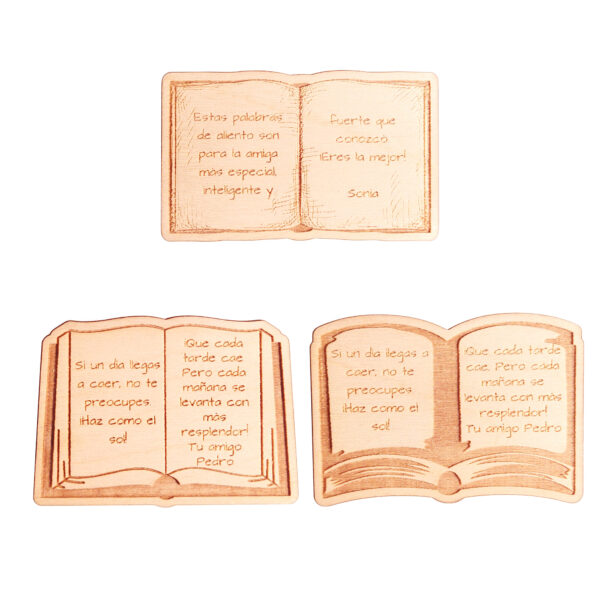 Estas palabras
de aliento son
para la amiga
más especial,
inteligente y
fuerte que
conozco.
¡Eres la mejor!
Sonia
Si un día llegas
a caer, no te
preocupes.
¡Haz como el
sol!
¡Que cada
tarde cae. Pero cada
mañana se
levanta con
más
resplendor!
Tu amigo
Pedro
Si un día llegas a
caer, no te
preocupes.
¡Haz como el
sol!
¡Que cada tarde
cae. Pero cada
mañana se
levanta con más
resplendor!
Tu amigo Pedro